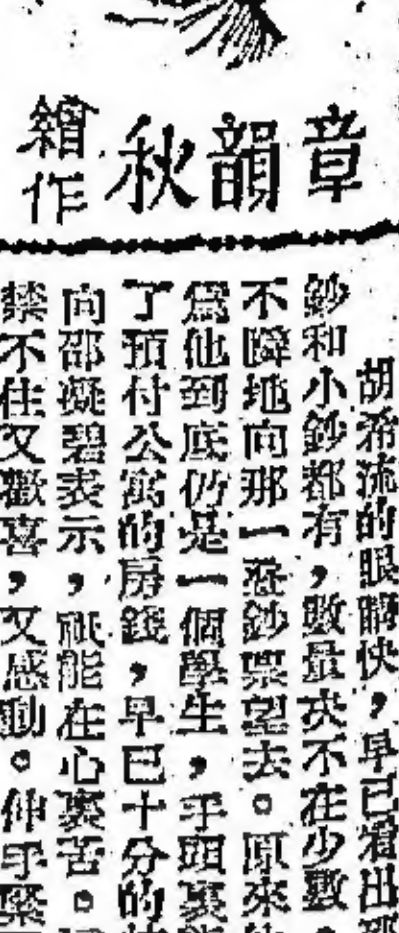 章韻秋
繪作
胡希流的眼睛快，早已看出那
鈔和小鈔都有，數量決不在少數。
不瞬地向那一疊鈔票望去。原來
爲他到底仍是一個學生，手頭裏
了預付公寓的房錢，早已十分的
向邵凝碧表示，祇能在心裏苦。
禁不住又歡喜，又感動。伸手緊